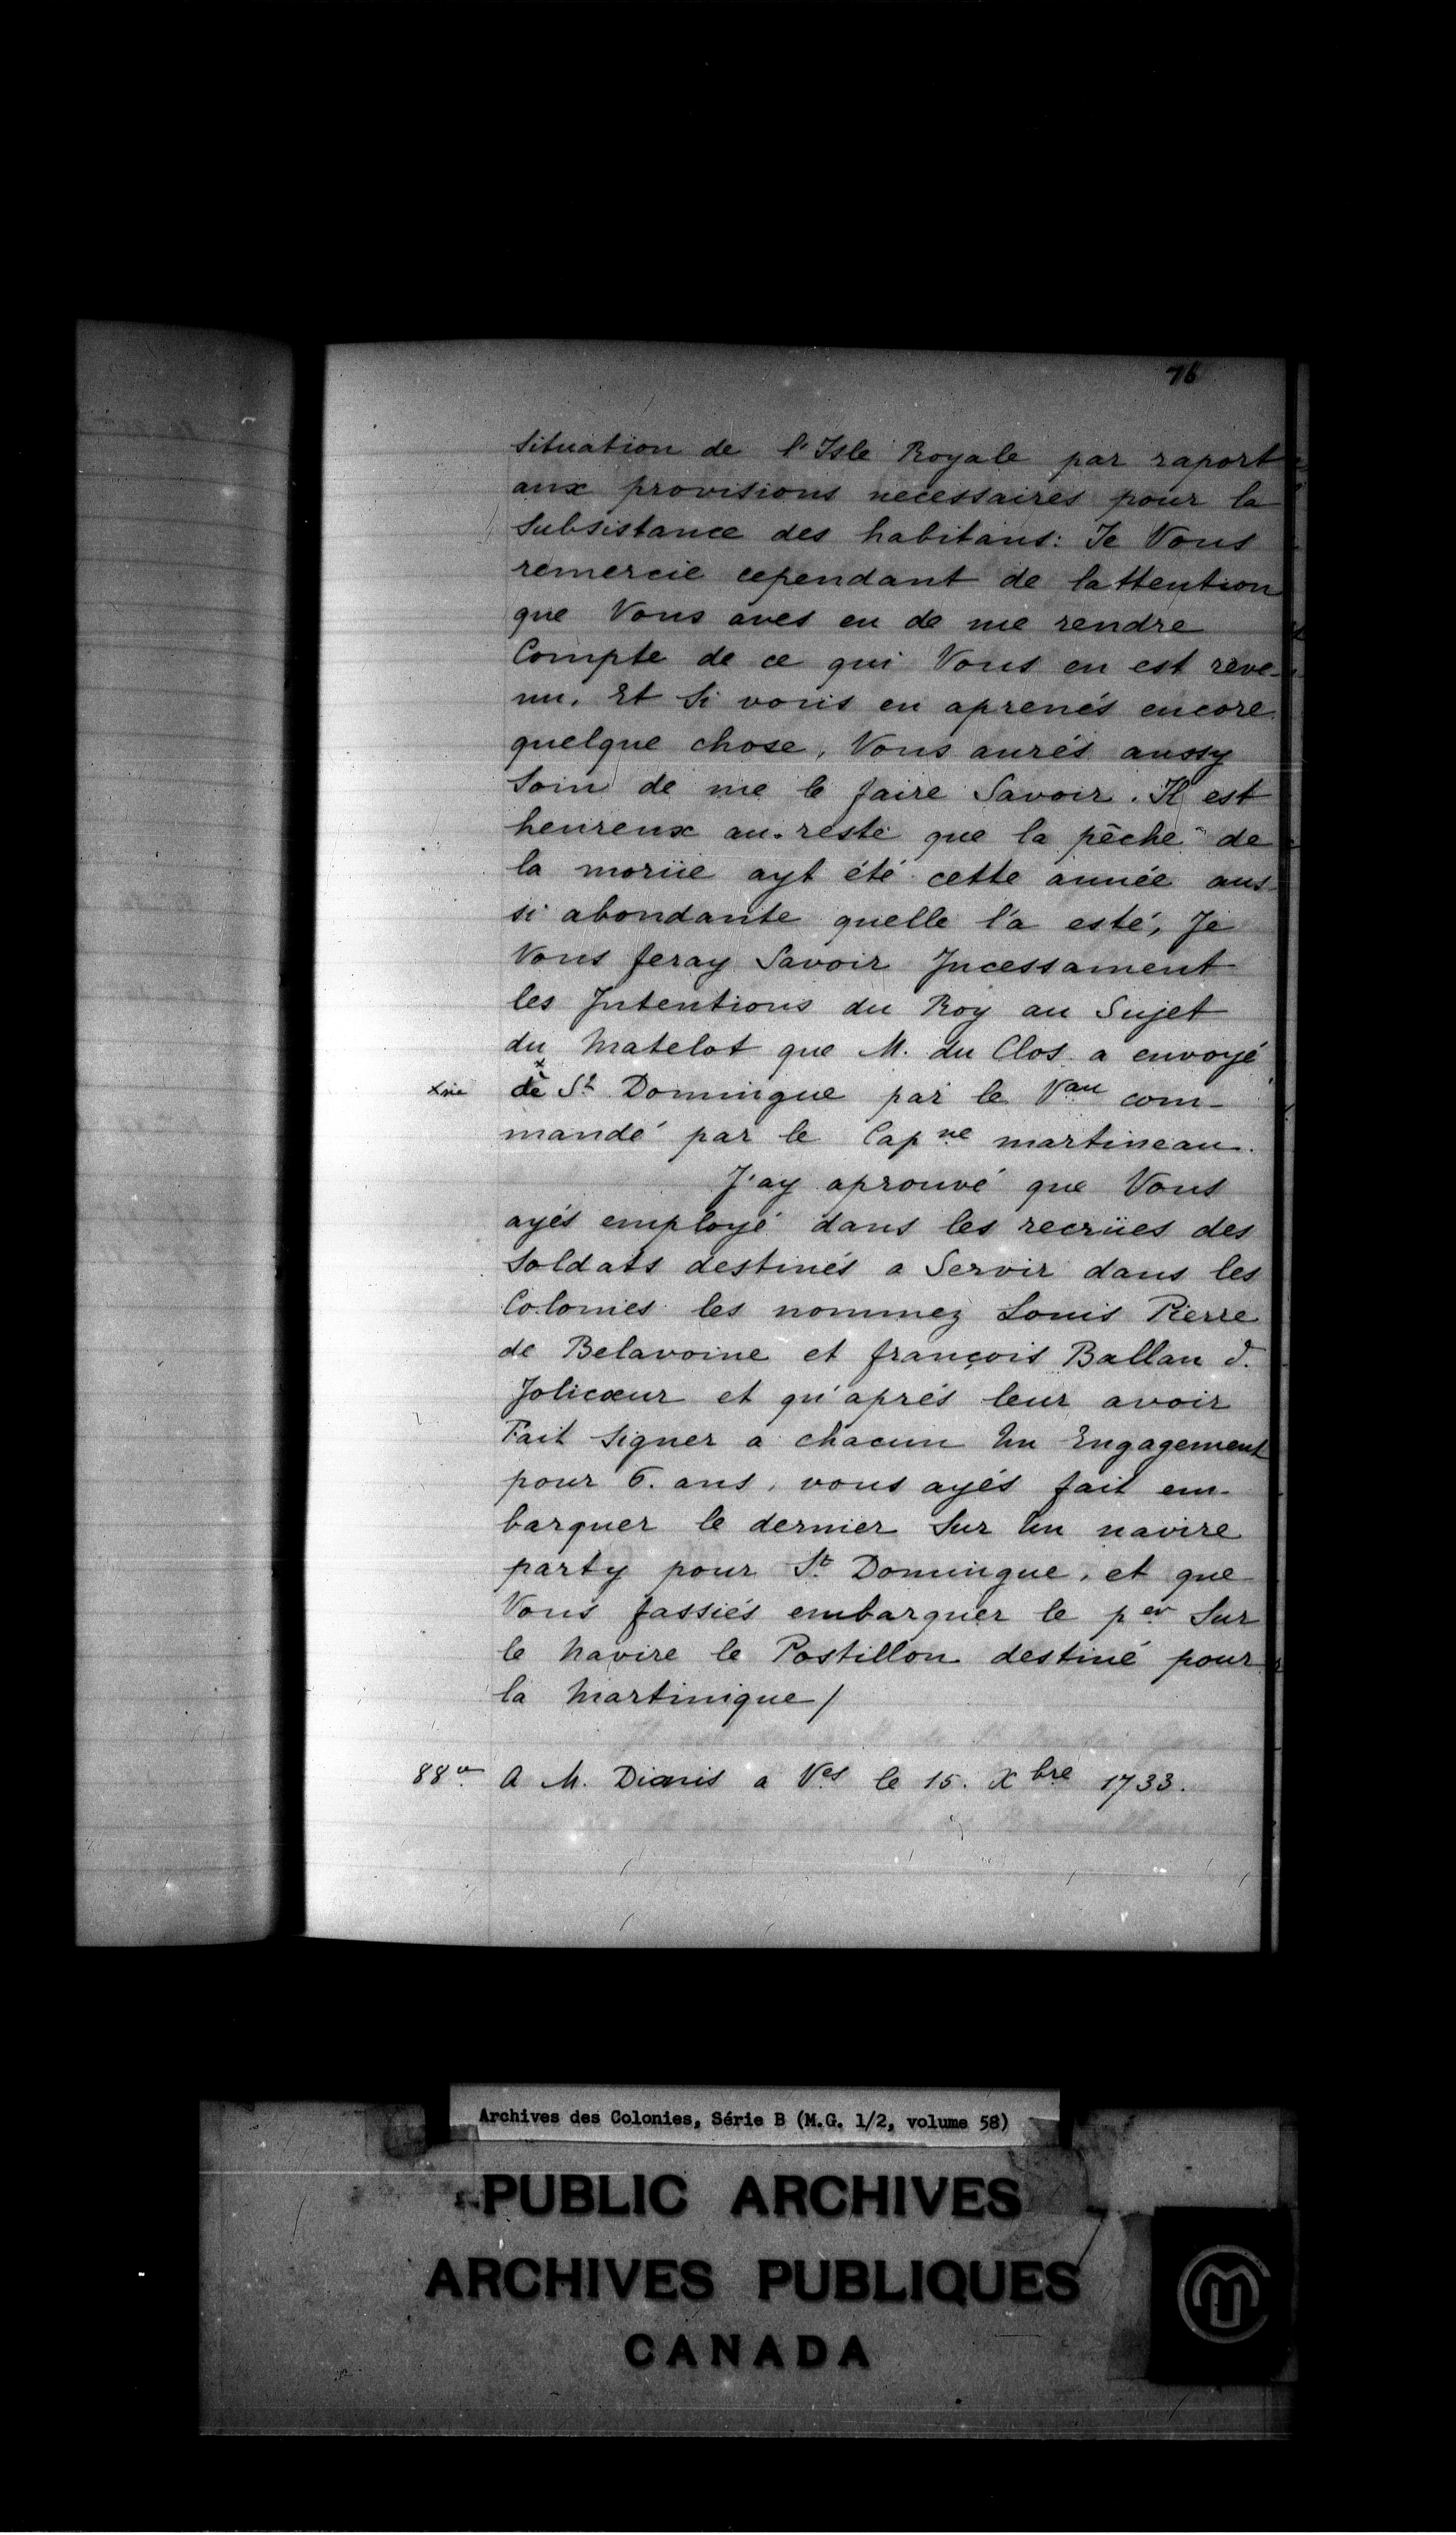 76
situation de l'Isle Royale par raport
aux provisions necessaires pour la
subsistance des habitans: Je Vous
remercie cependant de lattention
que Vous aves eu de me rendre
Compte de ce qui Vous en est reve-
nu. Et Si vous en aprenés encore
quelque chose, Vous aurés aussy
Soin de me le faire Savoir. Il est
heureux au reste que la pêche de
la moriie ayt été cette année aus-
si abondante quelle l'a esté, Je
Vous feray Savoir Incessament
les Intentions du Roy au Sujet
du Matelot que M. du Clos a envoyé
de St Domingue par le Vau com-
mandé par le Capne martineau.
J'ay aprouvé que Vous
ayés employé dans les recrües des
Soldats destinés a Servir dans les
Colonies les nommez Louis Pierre
de Belavoine et françois Ballan d.
Jolicœur et qu'aprés leur avoir
Fait signer a chacun Un Engagement
pour 6. ans, vous ayés fait em-
barquer le dernier Sur Un navire
party pour St Domingue, et que
Vous fassiés embarquer le per Sur
le Navire le Postillon destiné pour
la Martinique/
88vo A M. Dionis a Ves le 15. Xbre 1733.
Archives des Colonies, Série B (M.G. 1/2, volume 58)
PUBLIC ARCHIVES
ARCHIVES PUBLIQUES
CANADA